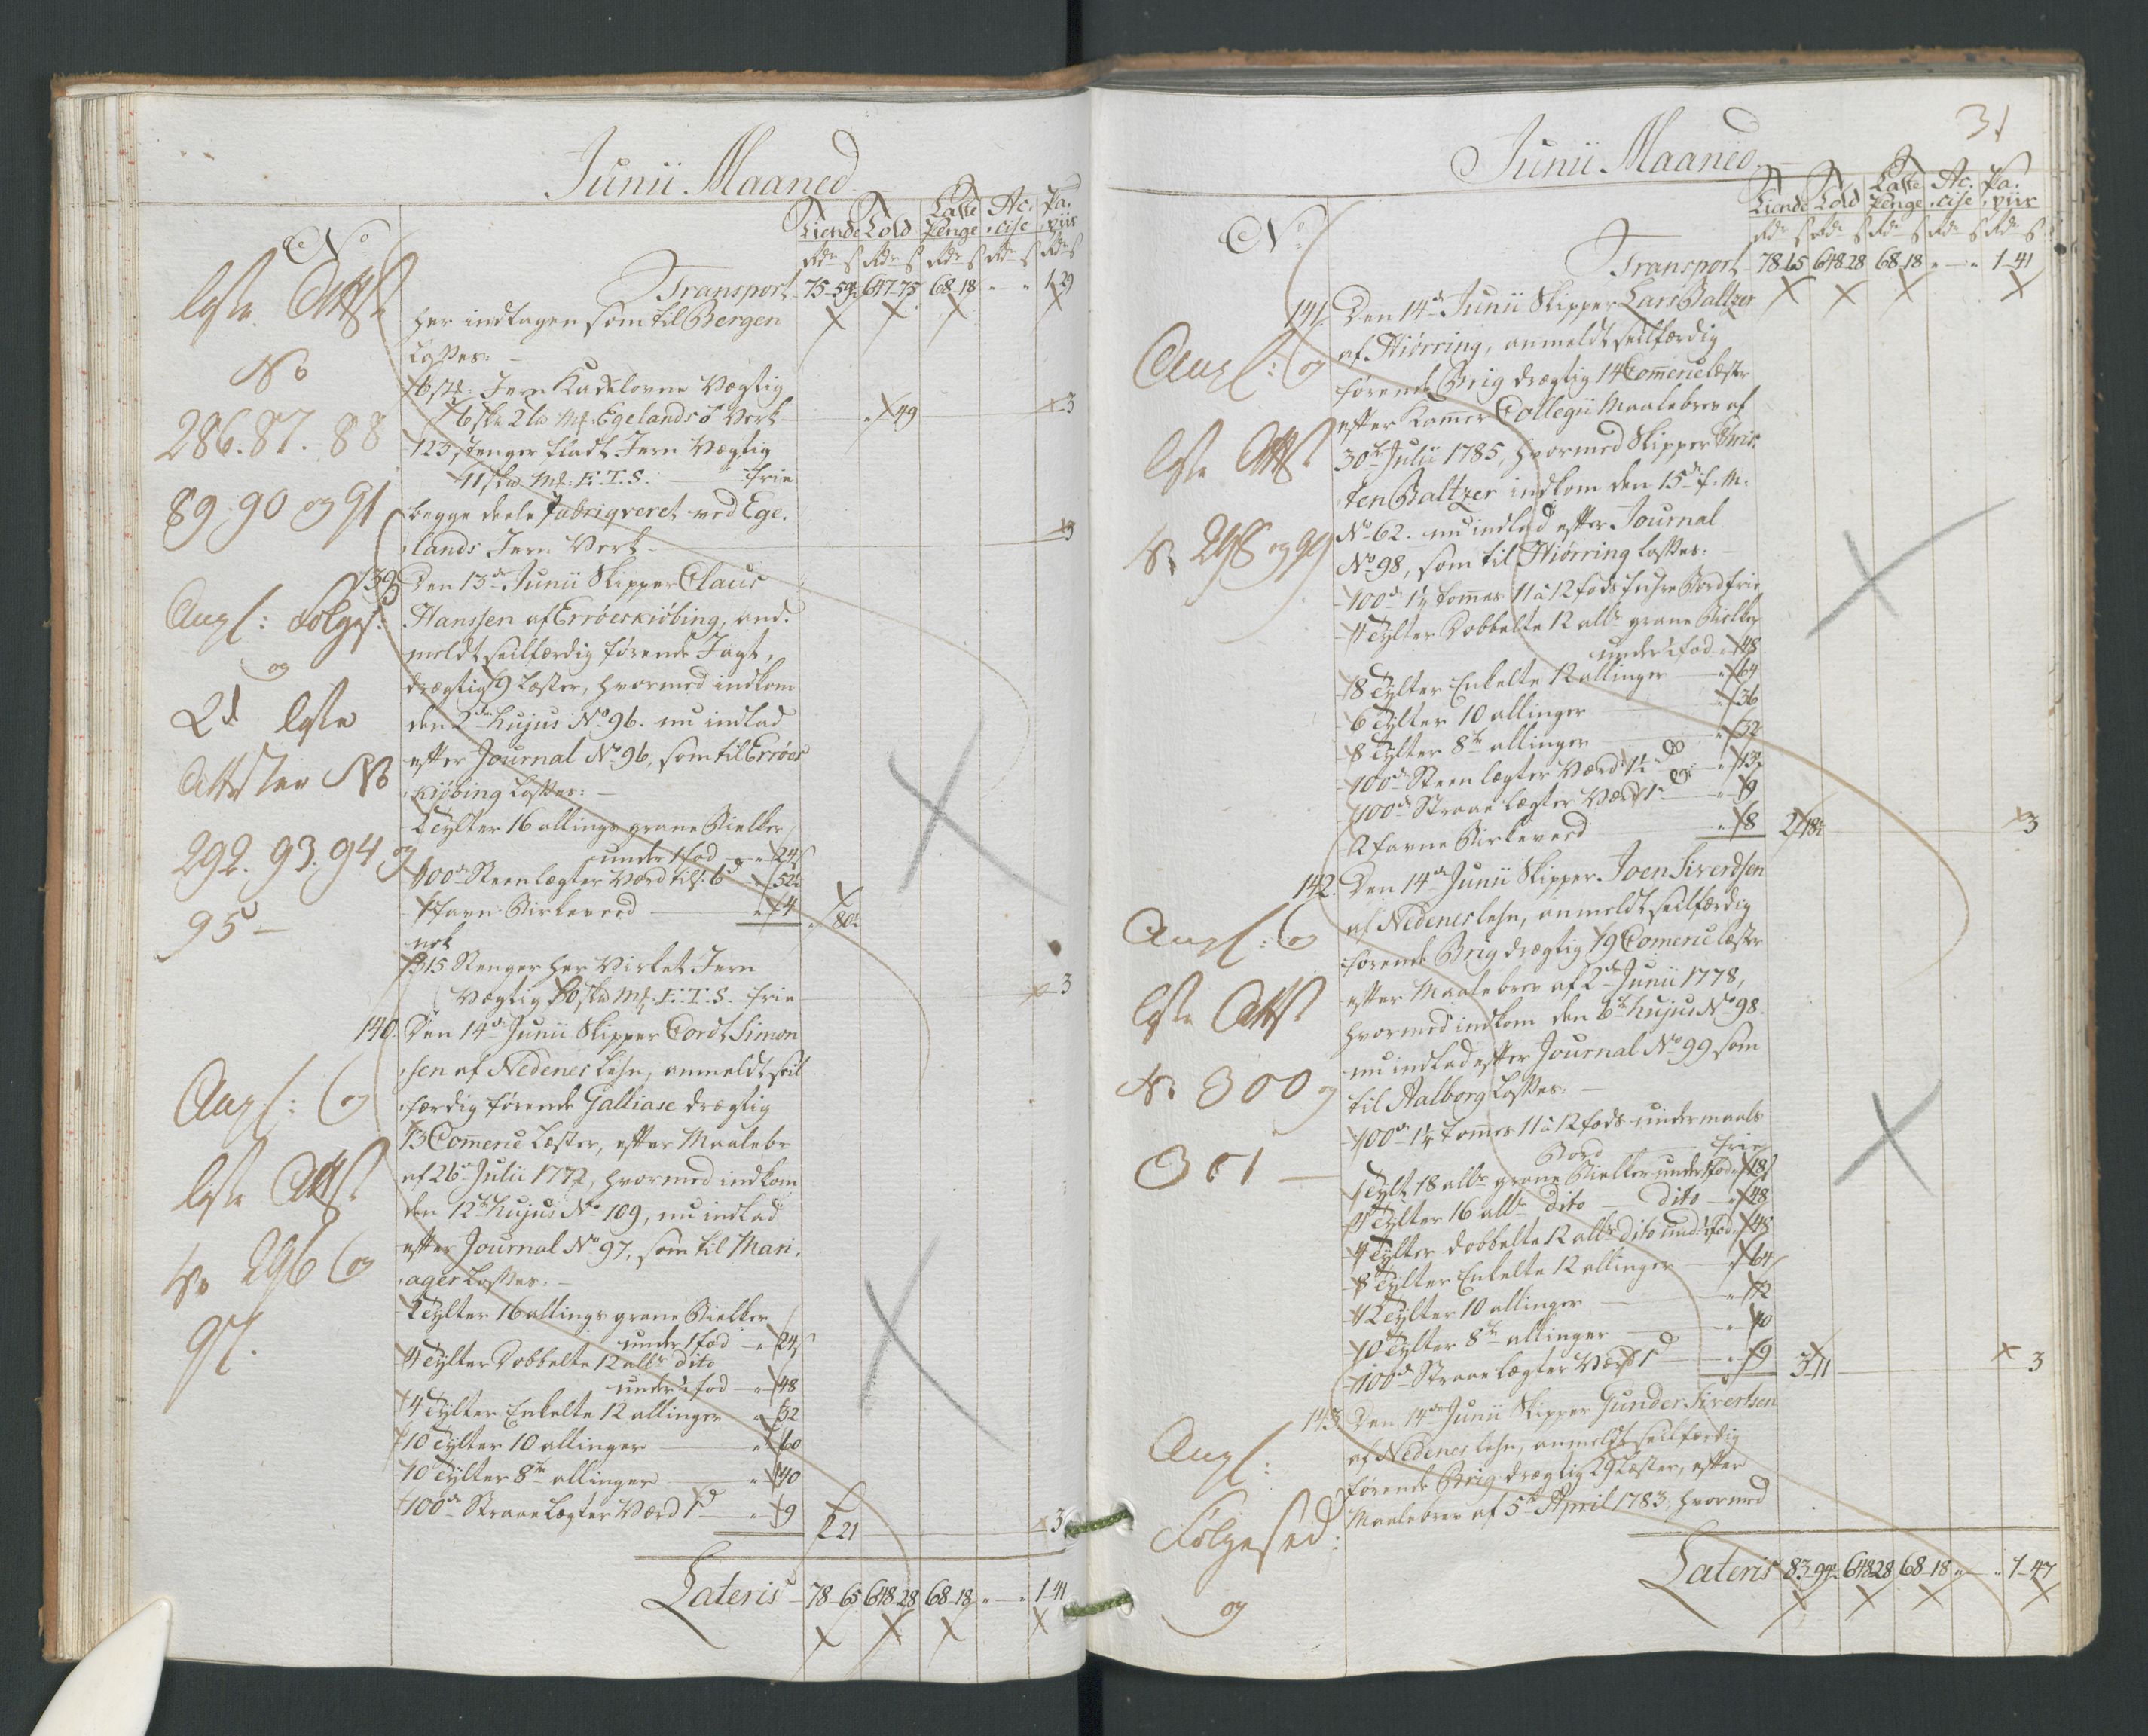 Junii Maaned
No
Tiende Told Laste Penge Ac. cise Pa. piir
Rdr s Rdr s Rdr s Rdr s Rdr s
Transport 75-59½ 647-75 68-18 " " 1-29
her indtagen som til Bergen
Losses:
6 st: Jern Kackelovne Vægtig
6 sk 2 Mk: Egelands Verk " 49 3
123 Stenger Stadt Jern Vægtig
11 Mk: F.T.S. frie
begge deele Fabriqveret ved Ege-
lands Jern Verk 3
lgste Attst
No
286. 87. 88
89. 90 og 91
139 Den 13de Junii Skipper Claus
Hanssen af Errøeskiøbing, an-
meldt seilfærdig førende Jagt,
drægtig 9 Læster, hvormed indkom
den 2den hujus No 96. nu indlad
efter Journal No 96, som til Errøes
kiøbing Losses:
2 Tylter 16 allings grane Bielker
under 1 fod " 24
100de Steen lægter Værd " 52
1 Favn Birkeved " 4 " 80½
nok
315 Stenger her Virket Jern
Vægtig Mk: F.T.S. frie 3
Angf: Følges:
og
2de lgste
Attster No
292. 93. 94 og
95
140. Den 14de Junii Skipper Cordt Simon
sen af Nedenes Lehn, anmeldt seil
færdig førende Galliase drægtig
13 Commerce Læster, efter Maalebr
af 26de Julii 1772, hvormed indkom
den 12te hujus No 109, nu indlad
efter Journal No 97, som til Mari-
ager Losses:
2 Tylter 16 allings grane Bielker
under 1 fod " 24
4 Tylter Dobbelte 12 all: dito
under 1 fod " 48
4 Tylter Enkelte 12 allinger " 32
10 Tylter 10 allinger " 60
10 Tylter 8te allinger " 40
100de Straae Lægter Værd 1 " 9 2 21 3
Angf: og
lgste Attst
No 296 og
97.
Lateris 78-65 648-28 68-18 " " 1-41
31
Junii Maaned
No
Tiende Told Laste Penge Ac. cise Pa. piir
Rdr s Rdr s Rdr s Rdr s Rdr s
Transport 78-65 648-28 68-18 " " 1-41
141. Den 14de Junii Skipper Lars Baltzer
af Hiørring, anmeldt seilfærdig
førende Brig drægtig 14 Commerce læster
efter Kammer Collegii Maalebrev af
30te Julii 1785, hvormed Skipper Chris-
ten Baltzer indkom den 15de f. M.
No 62. nu indlad efter Journal
No 98, som til Hiørring losses:
100de 1¼ tommes 11 à 12 fods fuhre Bord frie
4 Tylter Dobbelte 12 all: grane Bielker
under 1 fod " 48
8 Tylter Enkelte 12 allinger " 64
6 Tylter 10 allinger " 36
8 Tylter 8te allinger " 32
100de Steen lægter Værd 1½ " 13½
100de Straae lægter Værd 1 " 9
2 favne Birkeved " 8 2-18½ 3
Angf: og
lgste Attst
No 298 og 99
142. Den 14de Junii Skipper Joen Siverdsen
af Nedenes lehn, anmeldt seilfærdig
førende Brig drægtig 19 Comerce læster
efter Maalebrev af 2de Junii 1778,
hvormed indkom den 6te hujus No 98.
nu indlad efter Journal No 99 som
til Aalborg Losses:
100de 1¼ tommes 11 à 12 fods undermaals
Bord frie
1 Tylt 18 all: grane Bielker under 1 fod " 18
4 Tylter 16 all: dito dito " 48
4 Tylter dobbelte 12 all: dito und: 1 fod " 48
8 Tylter Enkelte 12 allinger " 64
12 Tylter 10 allinger " 72
10 Tylter 8te allinger " 40
100de Straae lægter Værd 1 " 9 3-11 3
Angf: og
lgste Attst
No 300 og
301
143 Den 14de Junii Skipper Gunder Sivertsen
af Nedenes lehn, anmeldt seilfærdig
førende Brig drægtig 29 Læster, efter
Maalebrev af 5te April 1783, hvormed
Angf:
Følgesed:
og
Lateris 83-94½ 648-28 68-18 " " 1-47